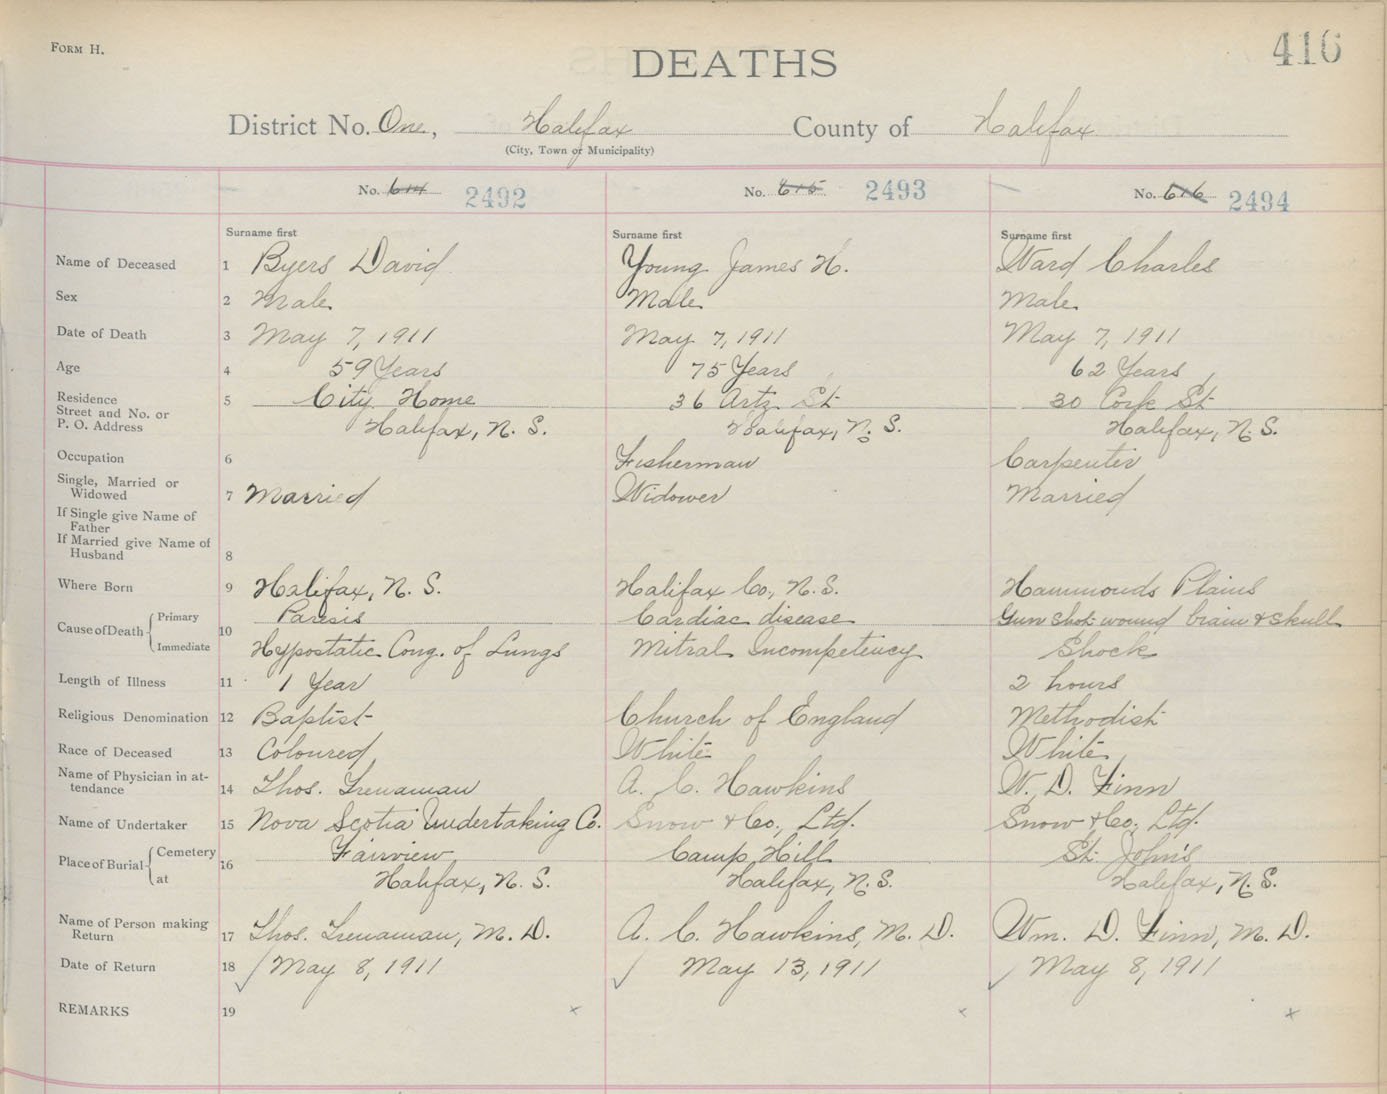 FORM H.
416
DEATHS
District No. One, Halifax County of Halifax
(City, Town or Municipality)
No. 614 2492 No. 615 2493 No. 616 2494
Surname first Surname first Surname first
Name of Deceased 1 Byers David Young James H. Ward Charles
Sex 2 Male Male Male
Date of Death 3 May 7, 1911 May 7, 1911 May 7, 1911
Age 4 59 Years 75 Years 62 Years
Residence 5 City Home 36 Artz St 30 Cork St
Street and No. or
P. O. Address Halifax, N. S. Halifax, N. S. Halifax, N. S.
Occupation 6 Fisherman Carpenter
Single, Married or
Widowed 7 Married Widower Married
If Single give Name of
Father
If Married give Name of
Husband 8
Where Born 9 Halifax, N. S. Halifax Co., N. S. Hammonds Plains
Cause of Death 10 Primary Parisis Cardiac disease Gun shot wound brain & skull
Immediate Hypostatic Cong. of Lungs Mitral Incompetency Shock
Length of Illness 11 1 Year 2 hours
Religious Denomination 12 Baptist Church of England Methodist
Race of Deceased 13 Coloured White White
Name of Physician in at-
tendance 14 Thos. Trenaman A. C. Hawkins W. D. Finn
Name of Undertaker 15 Nova Scotia Undertaking Co. Snow & Co., Ltd. Snow & Co., Ltd.
Place of Burial 16 Cemetery Fairview Camp Hill St. John's
at Halifax, N. S. Halifax, N. S. Halifax, N. S.
Name of Person making
Return 17 Thos. Trenaman, M. D. A. C. Hawkins, M. D. Wm. D. Finn, M. D.
Date of Return 18 May 8, 1911 May 13, 1911 May 8, 1911
REMARKS 19 x x x